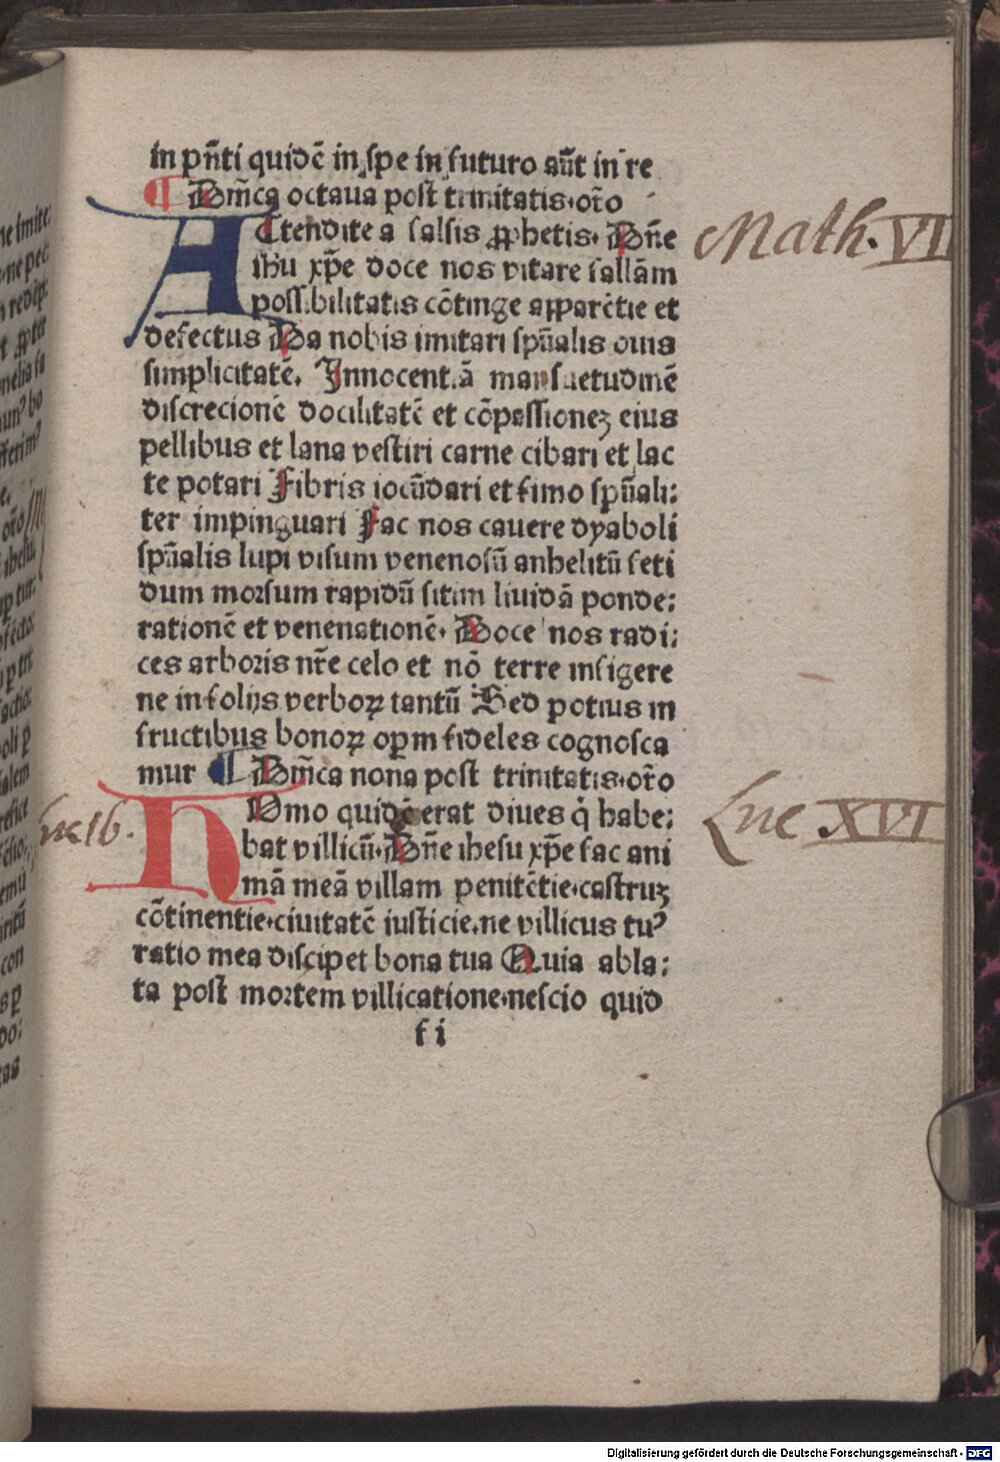 in pn̄ti quidē in spe in futuro aūt in re
¶ Dn̄ica octaua post trinitatis. or̄o
Attendite a falsis ꝓphetis. Dn̄e
ihū xp̄e doce nos vitare fallām
possibilitatis cōtinge apparētie et
defectus Da nobis imitari spūalis ouis
simplicitatē. Innocentiā mansuetudinē
discrecionē docilitatē et cōpassionez eius
pellibus et lana vestiri carne cibari et lac
te potari Fibris iocūdari et fimo spūali:
ter impinguari Fac nos cauere dyaboli
spūalis lupi visum venenosū anhelitū feti
dum morsum rapidū sitim liuidā ponde:
rationē et venenationē. Doce nos radi:
ces arboris nr̄e celo et nō terre infigere
ne in folijs verboꝝ tantū Sed potius in
fructibus bonoꝝ oꝑm fideles cognosca
mur ¶ Dn̄ica nona post trinitatis. or̄o
Homo quidā erat diues q̇ habe:
bat villicū. Dn̄e ihesu xp̄e fac ani
mā meā villam penitētie. castruꝫ
cōtinentie. ciuitatē iusticie. ne villicus tu?
ratio mea discipet bona tua Quia abla:
ta post mortem villicatione. nescio quid
f i
Math. VII
Luc XVI
Luc 16.
Digitalisierung gefördert durch die Deutsche Forschungsgemeinschaft - DFG